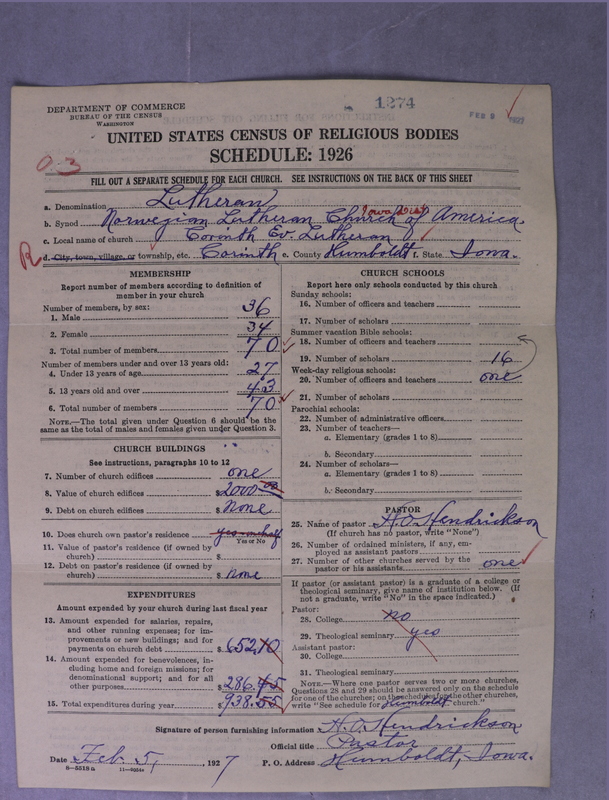 1274
DEPARTMENT OF COMMERCE
BUREAU OF THE CENSUS
WASHINGTON
FEB 8 1927
UNITED STATES CENSUS OF RELIGIOUS BODIES
SCHEDULE: 1926
0-3
FILL OUT A SEPARATE SCHEDULE FOR EACH CHURCH. SEE INSTRUCTIONS ON THE BACK OF THIS SHEET
a. Denomination Lutheran
Iowa Dist
b. Synod Norwegian Lutheran Church of America
c. Local name of church Corinth Ev. Lutheran
R d. City, town, village, or township, etc. Corinth e. County Humboldt f. State Iowa.
MEMBERSHIP
Report number of members according to definition of member in your church
Number of members, by sex:
1. Male 36
2. Female 34
3. Total number of members 70
Number of members under and over 13 years old:
4. Under 13 years of age 27
5. 13 years old and over 43
6. Total number of members 70
NOTE.—The total given under Question 6 should be the same as the total of males and females given under Question 3.
CHURCH BUILDINGS
See instructions, paragraphs 10 to 12
7. Number of church edifices one
8. Value of church edifices $ 2000 00
9. Debt on church edifices $ None
10. Does church own pastor's residence yes-one half
Yes or No
11. Value of pastor's residence (if owned by church) $
12. Debt on pastor's residence (if owned by church) $ None
EXPENDITURES
Amount expended by your church during last fiscal year
13. Amount expended for salaries, repairs, and other running expenses; for improvements or new buildings; and for payments on church debt $ 652.10
14. Amount expended for benevolences, including home and foreign missions; for denominational support; and for all other purposes $ 286.45
15. Total expenditures during year $ 938.55
CHURCH SCHOOLS
Report here only schools conducted by this church
Sunday schools:
16. Number of officers and teachers
17. Number of scholars
Summer vacation Bible schools:
18. Number of officers and teachers
19. Number of scholars 16
Week-day religious schools:
20. Number of officers and teachers one
21. Number of scholars
Parochial schools:
22. Number of administrative officers
23. Number of teachers—
a. Elementary (grades 1 to 8)
b. Secondary
24. Number of scholars—
a. Elementary (grades 1 to 8)
b. Secondary
PASTOR
25. Name of pastor H.O. Hendrickson
(If church has no pastor, write "None")
26. Number of ordained ministers, if any, employed as assistant pastors
27. Number of other churches served by the pastor or his assistants one
If pastor (or assistant pastor) is a graduate of a college or theological seminary, give name of institution below. (If not a graduate, write "No" in the space indicated.)
Pastor:
28. College no
29. Theological seminary yes
Assistant pastor:
30. College
31. Theological seminary
NOTE.—Where one pastor serves two or more churches, Questions 28 and 29 should be answered only on the schedule for one of the churches; on the schedules for the other churches write "See schedule for Humboldt church."
Signature of person furnishing information H.O. Hendrickson
Official title Pastor
Date Feb. 5, 1927 P. O. Address Humboldt, Iowa.
8—5518 a